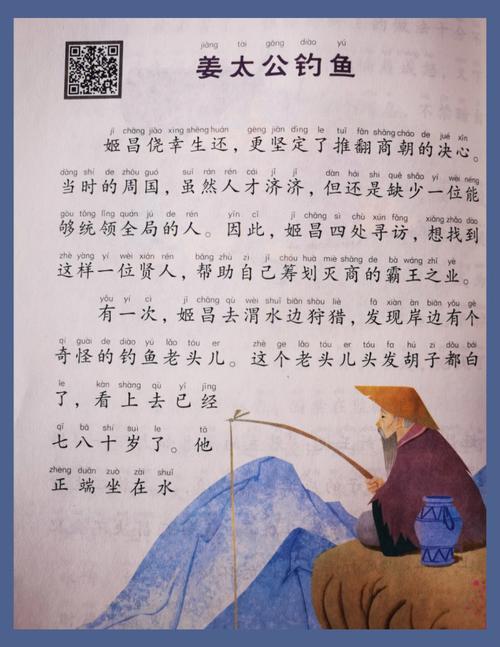 jiāng tài gōng diào yú
姜太公钓鱼
jī chāng jiǎo xìng shēng huán gèng jiān dìng le tuī fān shāng cháo de jué xīn
姬昌侥幸生还，更坚定了推翻商朝的决心。
dāng shí de zhōu guó suī rán rén cái jǐ jǐ dàn hái shì quē shǎo yí wèi néng
当时的周国，虽然人才济济，但还是缺少一位能
gòu tǒng lǐng quán jú de rén yīn cǐ jī chāng sì chù xún fǎng xiǎng zhǎo dào
够统领全局的人。因此，姬昌四处寻访，想找到
zhè yàng yí wèi xián rén bāng zhù zì jǐ chóu huà miè shāng de bà wáng zhī yè
这样一位贤人，帮助自己筹划灭商的霸王之业。
yǒu yí cì jī chāng qù wèi shuǐ biān shòu liè fā xiàn àn biān yǒu gè
有一次，姬昌去渭水边狩猎，发现岸边有个
qí guài de diào yú lǎo tóu er zhè ge lǎo tóu er tóu fa hú zi dōu bái
奇怪的钓鱼老头儿。这个老头儿头发胡子都白
le kàn shàng qù yǐ jīng
了，看上去已经
qī bā shí suì le tā
七八十岁了。他
zhèng duān zuò zài shuǐ
正端坐在水